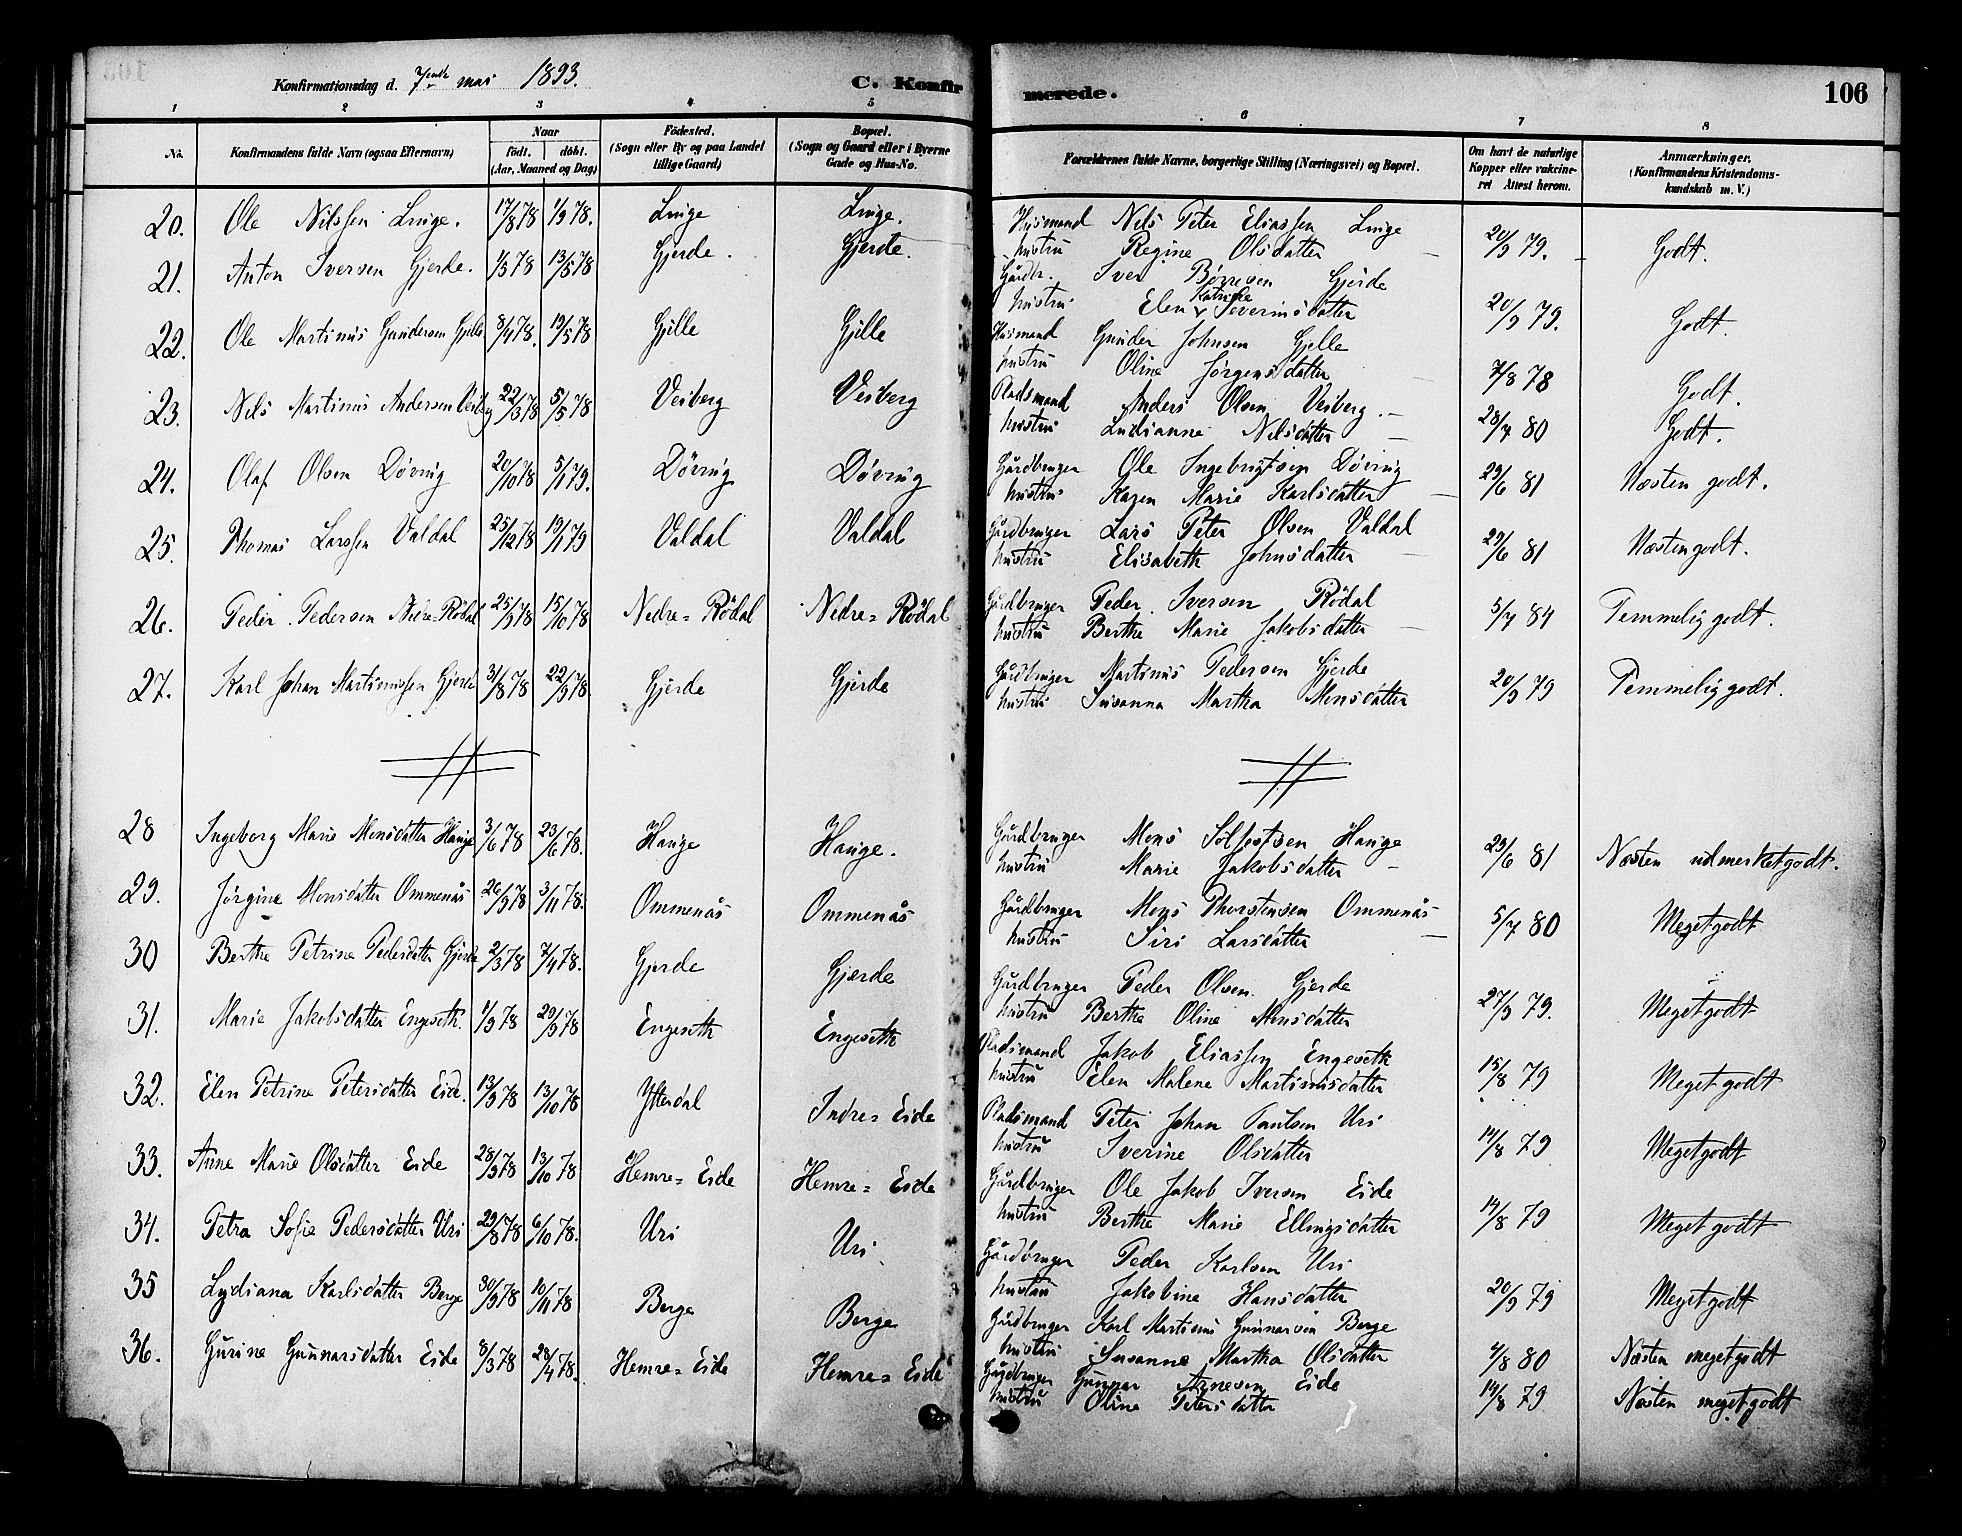 Konfirmationsdag d. 7nde mai 1893.
C. Konfirmerede.
106
1 2 3 4 5 6 7 8
No.
Konfirmandens fulde Navn (ogsaa Efternavn)
Naar
født. døbt.
(Aar, Maaned og Dag)
Födested.
(Sogn eller By og paa Landet tillige Gaard)
Bopæl.
(Sogn og Gaard eller i Byerne Gade og Hus-No.
Forældrenes fulde Navne, borgerlige Stilling (Næringsvei) og Bopæl.
Om havt de naturlige Kopper eller vaccineret Attest herom.
Anmærkninger.
(Konfirmandens Kristendomskundskab m. V.)
20. Ole Nilssen Linge. 17/8 78 1/9 78. Linge Linge. Husmand Nils Peter Eliassen Linge 20/9 79. Godt.
hustru Regine Olsdatter
21. Anton Iversen Gjerde. 1/5 78 13/5 78 Gjerde. Gjerde. Gårdbr. Iver Børresen Gjerde 20/9 79. Godt.
hustru Elen Katrine Severinsdatter
22. Ole Martinus Gundersen Gjelle 8/4 78. 19/5 78 Gjelle Gjelle Husmand Gunder Johnsen Gjelle 7/8 78 Godt.
hustru Oline Jørgensdatter
23. Nils Martinus Andersen Veiberg 22/3 78 5/5 78 Veiberg Veiberg Pladsmand Anders Olsen Veiberg. 28/7 80 Godt.
hustru Lydianne Nilsdatter
24. Olaf Olsen Döving 20/10 78 5/1 79. Döving Döving Gårdbruger Ole Ingebrigtsen Döving 29/6 81 Næsten godt.
hustru Karen Marie Karlsdatter
25. Thomas Larssen Valdal 25/12 78 19/1 79 Valdal Valdal Gårdbruger Lars Peter Olsen Valdal 29/6 81 Næsten godt.
hustru Elisabeth Johnsdatter
26. Peder Pedersen Nedre=Rödal 25/9 78 15/10 78 Nedre=Rödal Nedre=Rödal Gårdbruger Peder Iversen Rödal 5/7 84 Temmelig godt.
hustru Berthe Marie Jakobsdatter
27. Karl Johan Martinussen Gjerde 31/8 78 22/9 78. Gjerde Gjerde Gårdbruger Martinus Pedersen Gjerde 20/9 79 Temmelig godt.
hustru Susanna Martha Monsdatter
28 Ingeborg Marie Monsdatter Hauge 3/6 78 23/6 78. Hauge Hauge. Gårdbruger Mons Solfestsen Hauge 29/6 81 Næsten udmerket godt.
hustru Marie Jakobsdatter
29. Jørgine Monsdatter Ommenås 26/9 78 3/11 78. Ommenås Ommenås Gårdbruger Mons Thorstensen Ommenås 5/7 80 Meget godt
hustru Siri Larsdatter
30 Berthe Petrine Pedersdatter Gjerde 2/3 78 7/4 78. Gjerde Gjerde Gårdbruger Peder Olsen Gjerde 27/9 79. Meget godt
hustru Berthe Oline Monsdatter
31. Marie Jakobsdatter Engeseth. 1/9 78 29/9 78 Engeseth Engeseth Pladsmand Jakob Eliassen Engeseth 15/8 79 Meget godt
hustru Elen Malene Martinusdatter
32. Elen Petrine Petersdatter Eide. 13/9 78 13/10 78 Ytterdal Indre=Eide Pladsmand Peter Johan Paulsen Uri 14/8 79 Meget godt
hustru Iverine Olsdatter
33. Anne Marie Olsdatter Eide 28/9 78 13/10 78 Hemre=Eide Hemre=Eide Gårdbruger Ole Jakob Iversen Eide 14/8 79 Meget godt
hustru Berthe Marie Ellingsdatter
34. Petra Sofie Pedersdatter Uri 29/8 78 6/10 78. Uri Uri Gårdbruger Peder Karlsen Uri 20/9 79 Meget godt
hustru Jakobine Hansdatter
35 Lydiana Karlsdatter Berge 30/9 78 10/11 78 Berge Berge Gårdbruger Karl Martinus Gunnarsen Berge 4/8 80 Næsten meget godt
hustru Susanne Martha Olsdatter
36. Gurine Gunnarsdatter Eide 8/3 78 28/4 78. Hemre=Eide Hemre=Eide Gårdbruger Gunnar Arnesen Eide 14/8 79 Næsten meget godt
hustru Oline Petersdatter